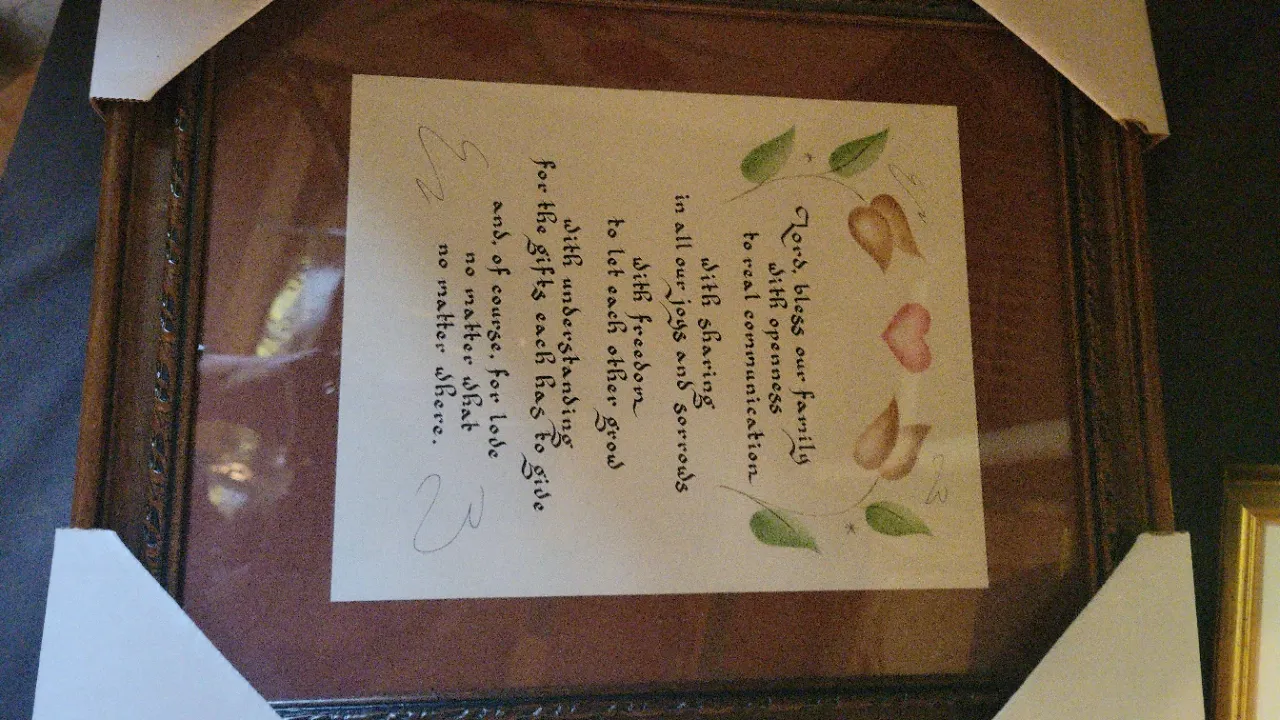 Lord, bless our family
with openness
to real communication
with sharing
in all our joys and sorrows
with freedom
to let each other grow
with understanding
for the gifts each has to give
and, of course, for love
no matter what
no matter where.